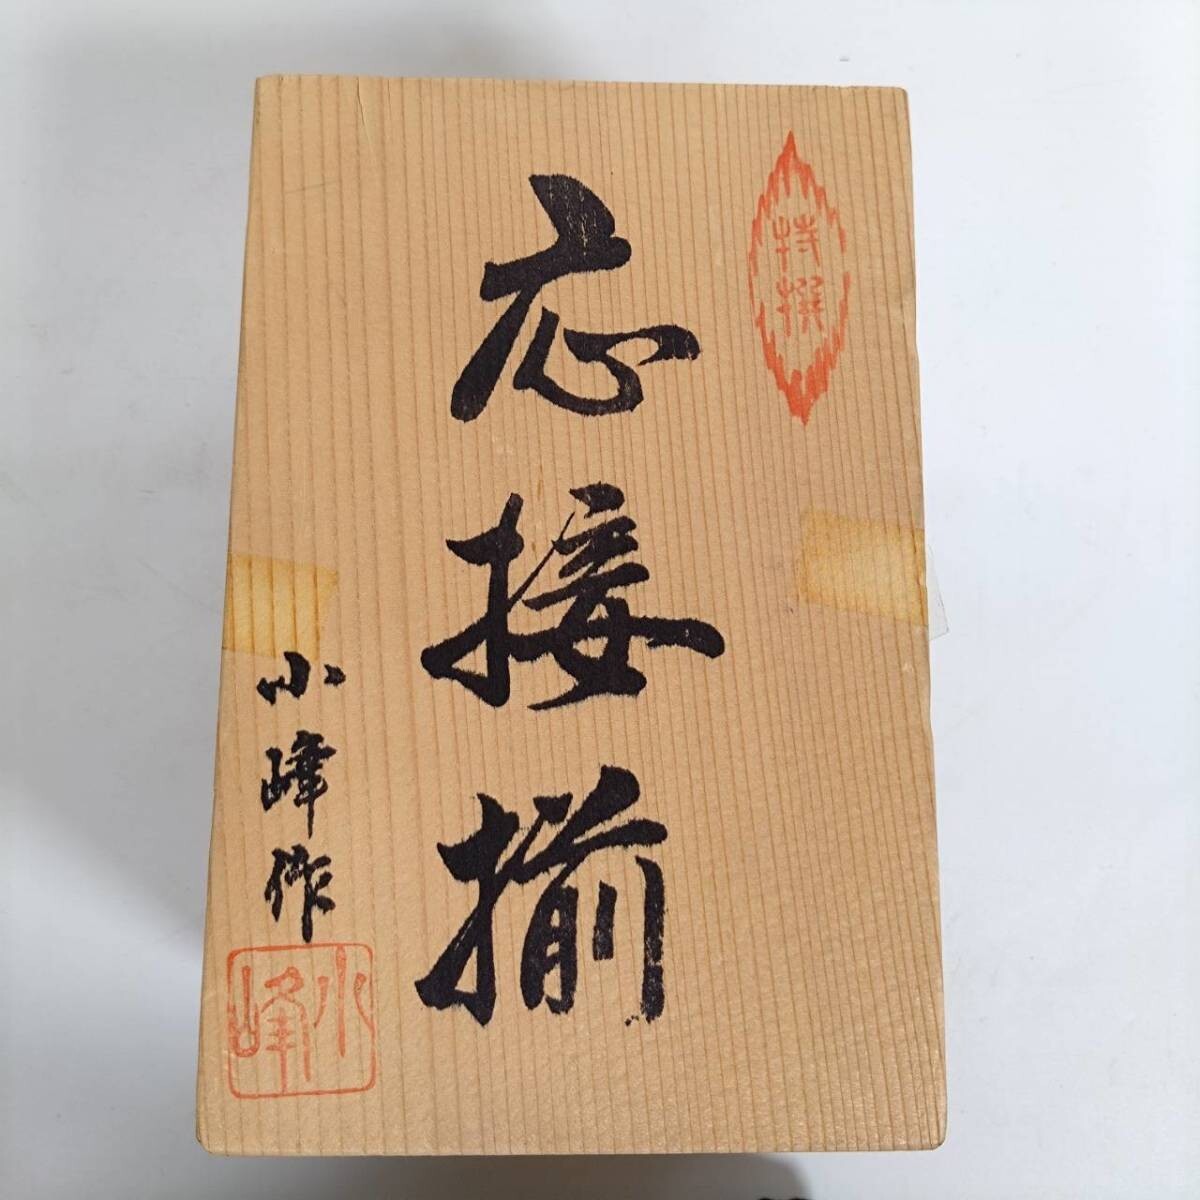 特撰
応接揃
小峰作
小峰